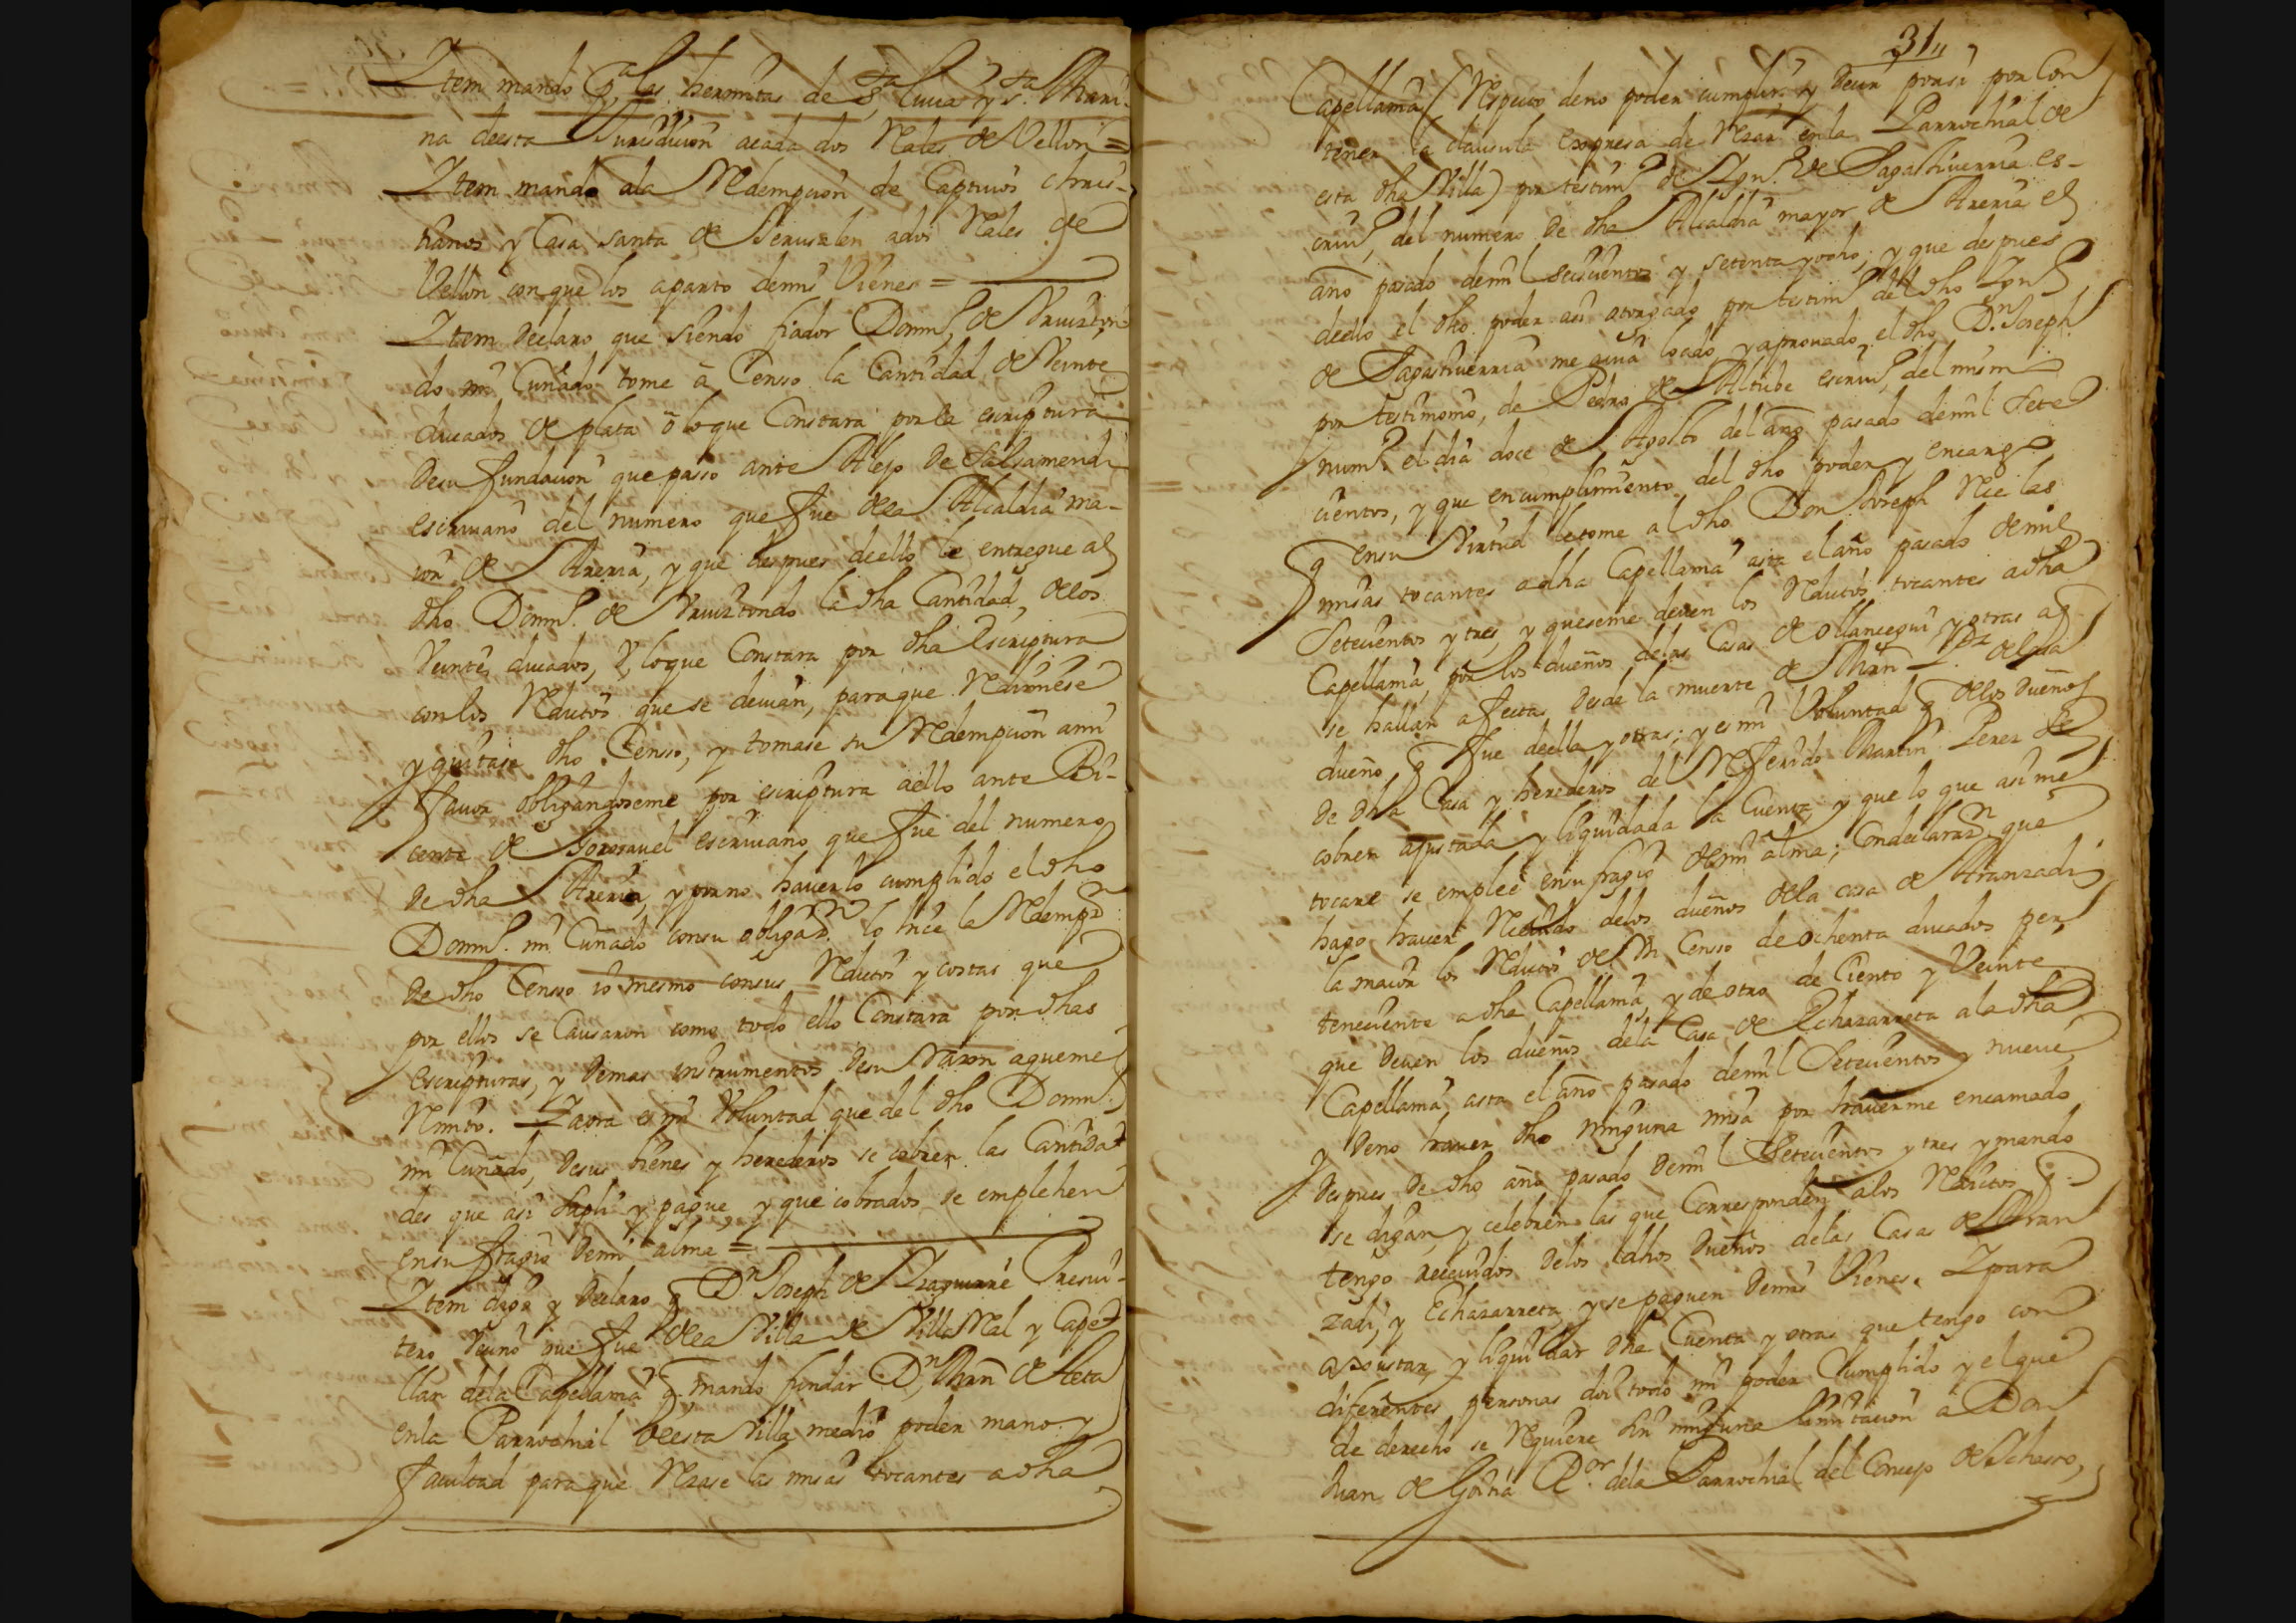 Ytem mando p.ª las hermitas de S.ta Lucia y S.ta Mari-
na deesta Jurisdicion acada dos Rales de Vellon =
Ytem mando ala Redempcion de Captivos chris-
tianos y Casa santa de Jerusalen ados Rales de
Vellon conque los aparto demis Vienes =
Ytem declaro que siendo fiador Domin.º de Vruizton
do mi Cuñado tome à Censo la Cantidad de Veinte
ducados de plata ò loque Constara por la escriptura
desu fundacion que passo ante Alejo de Salsamendi
escrivano del numero que fue dela Alcaldia ma-
ior de Areria, y que despues deello le entregue al
dho Domin.º de Vruiztondo la dha Cantidad, delos
Veinte ducados, y loque Constara por dha Escriptura
conlos Reditos que se devian, paraque Redimiese
y quitase dho Censso, y tomase su Redempcion ami
favor obligandoseme por escriptura aello ante Bi-
cente de escrivano que fue del numero
de dha Areria, y porno haverlo cumplido el dho
Domin.º mi Cuñado consu obligaz.on lo hice la Redempz.on
de dho Censso io mesmo consus Reditos y costas que
por ellos se Causaron como todo ello Constara por dhas
escripturas, y demas instrumentos desu Razon aqueme
Remito. Yaora es mi Voluntad que del dho Domin.º
mi Cuñado, desus bienes y herederos se cobren las Cantida-
des que asi supli y pague y que cobrados se emplehen
ensu fragio demi alma =
Ytem digo y declaro q D.n Joseph de Yzaguirre Presvi-
tero Vecino que fue dela Villa de VillaReal y Cape-
llan dela Capellania q mando fundar D.n Mrn de
enla Parrochial deesta Villa medio poder mano y
facultad paraque Rezase las misas tocantes adha
31,,
Capellania (Respecto deno poder cumplir, y decir porsi por Con
tener la clausula expresa de Rezar enla Parrochial de
esta dha Villa) por testim.º de Ygn.º de Sagastiverria es-
criv.º del numero de dha Alcaldia mayor de Areria el
año pasado demil seiscientos y setenta y ocho, y que despues
deello el dho poder asi otorgado por testim.º del dho Ygn.º
de Sagastiverria me avia loado y aprovado el dho D.n Joseph
por testimonio, de Pedro de Altube escriv.º del mismo
num.º el dia doce de Agosto del año pasado demil Sete
cientos, y que encumplimiento del dho poder y encargo
y ensu Virtud letome al dho Don Joseph Rece las
misas tocantes adha Capellania asta el año pasado demil
Setecientos y tres, y queseme deven los Reditos tocantes adha
Capellania, por los dueños delas Casas de Ollarcegui y otras aq
se hallan afectas desde la muerte de Mrn P.rz
dueño q fue deella y otras; y es mi Voluntad q delos dueños
de dha Casa y herederos del Referido Martin Perez se
cobren ajustada y liquidada la Cuenta, y que lo que asi me
tocare se emplee ensu fragio demi alma; Condeclaraz.n que
hago haver Recivido delos dueños dela casa de Aranzadi
la maior los Reditos de Vn Censo de ochenta ducados per
teneciente adha Capellania, y de otro de Ciento y Veinte
que deven los dueños dela Casa de Echazarreta ala dha
Capellania asta el año pasado demil Setecientos y nueve,
y deno haver dho ninguna misa por haverme encamado
despues de dho año pasado demil Setecientos y tres y mando
se digan, y celebren las que Corresponden alos Reditos q
tengo recevidos delos dhos dueños delas Casas de Aran
zadi, y Echazarreta, y se paguen demis Vienes. Ypara
ajustar y liquidar dha Cuenta y otras que tengo con
diferentes personas doi todo mi poder Cumplido y el que
de derecho se Requiere sin ninguna limitacion à Don
Juan de Goitia R.or dela Parrochial del Concejo de Ichasso,